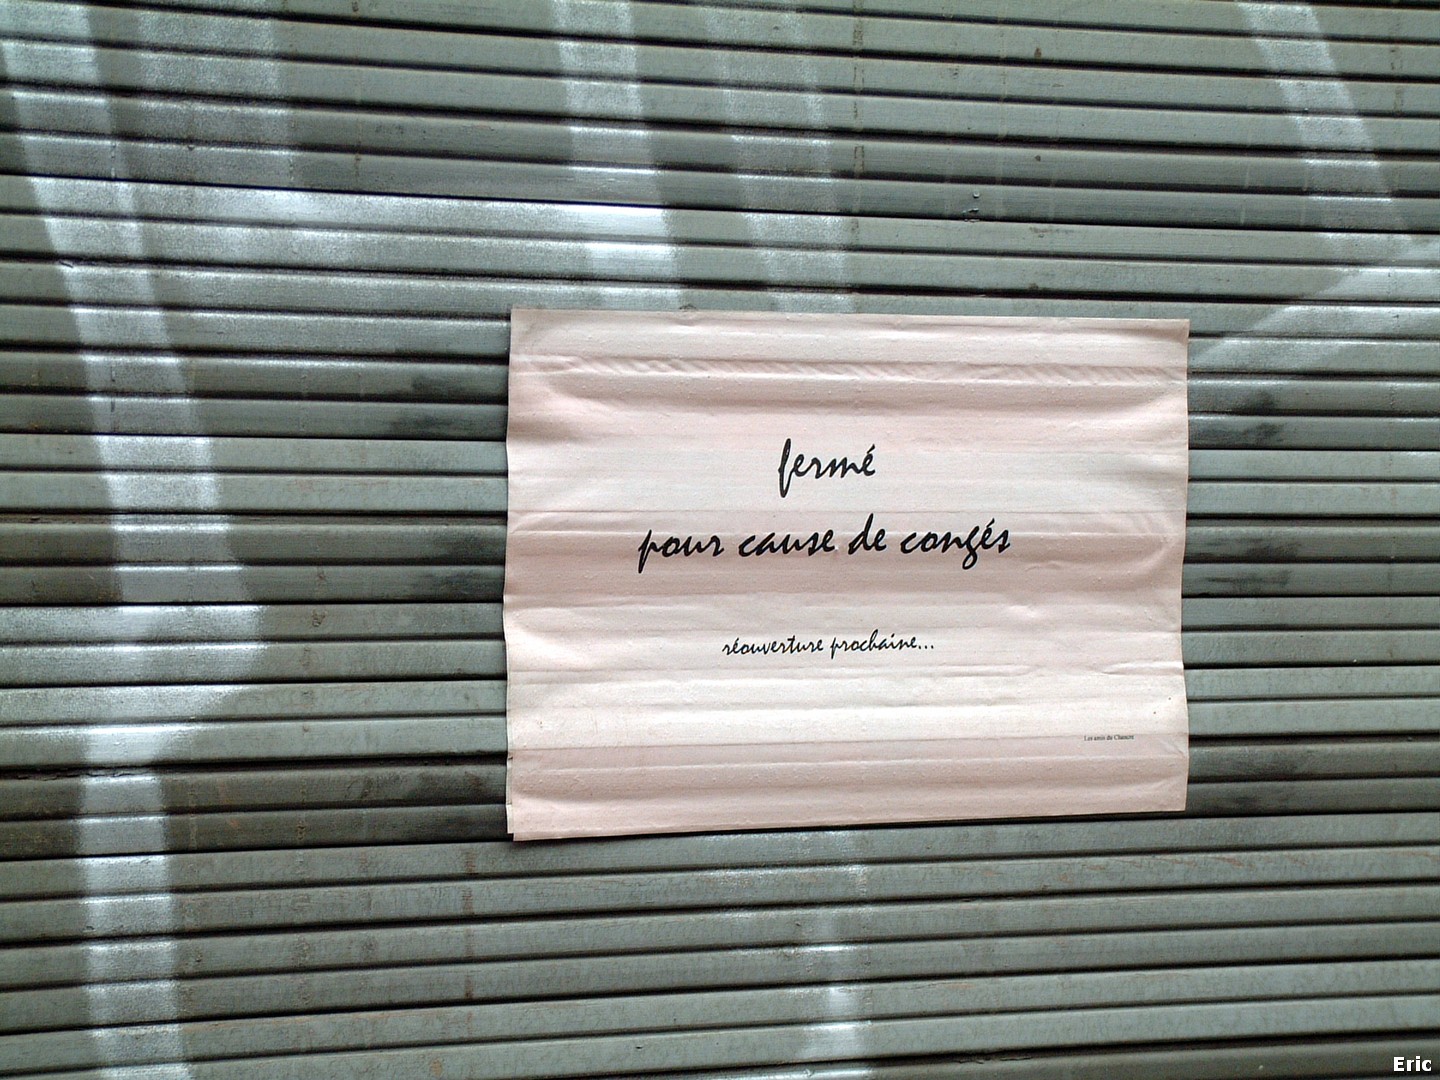 fermé
pour cause de congés
réouverture prochaine...
Les amis du
Eric